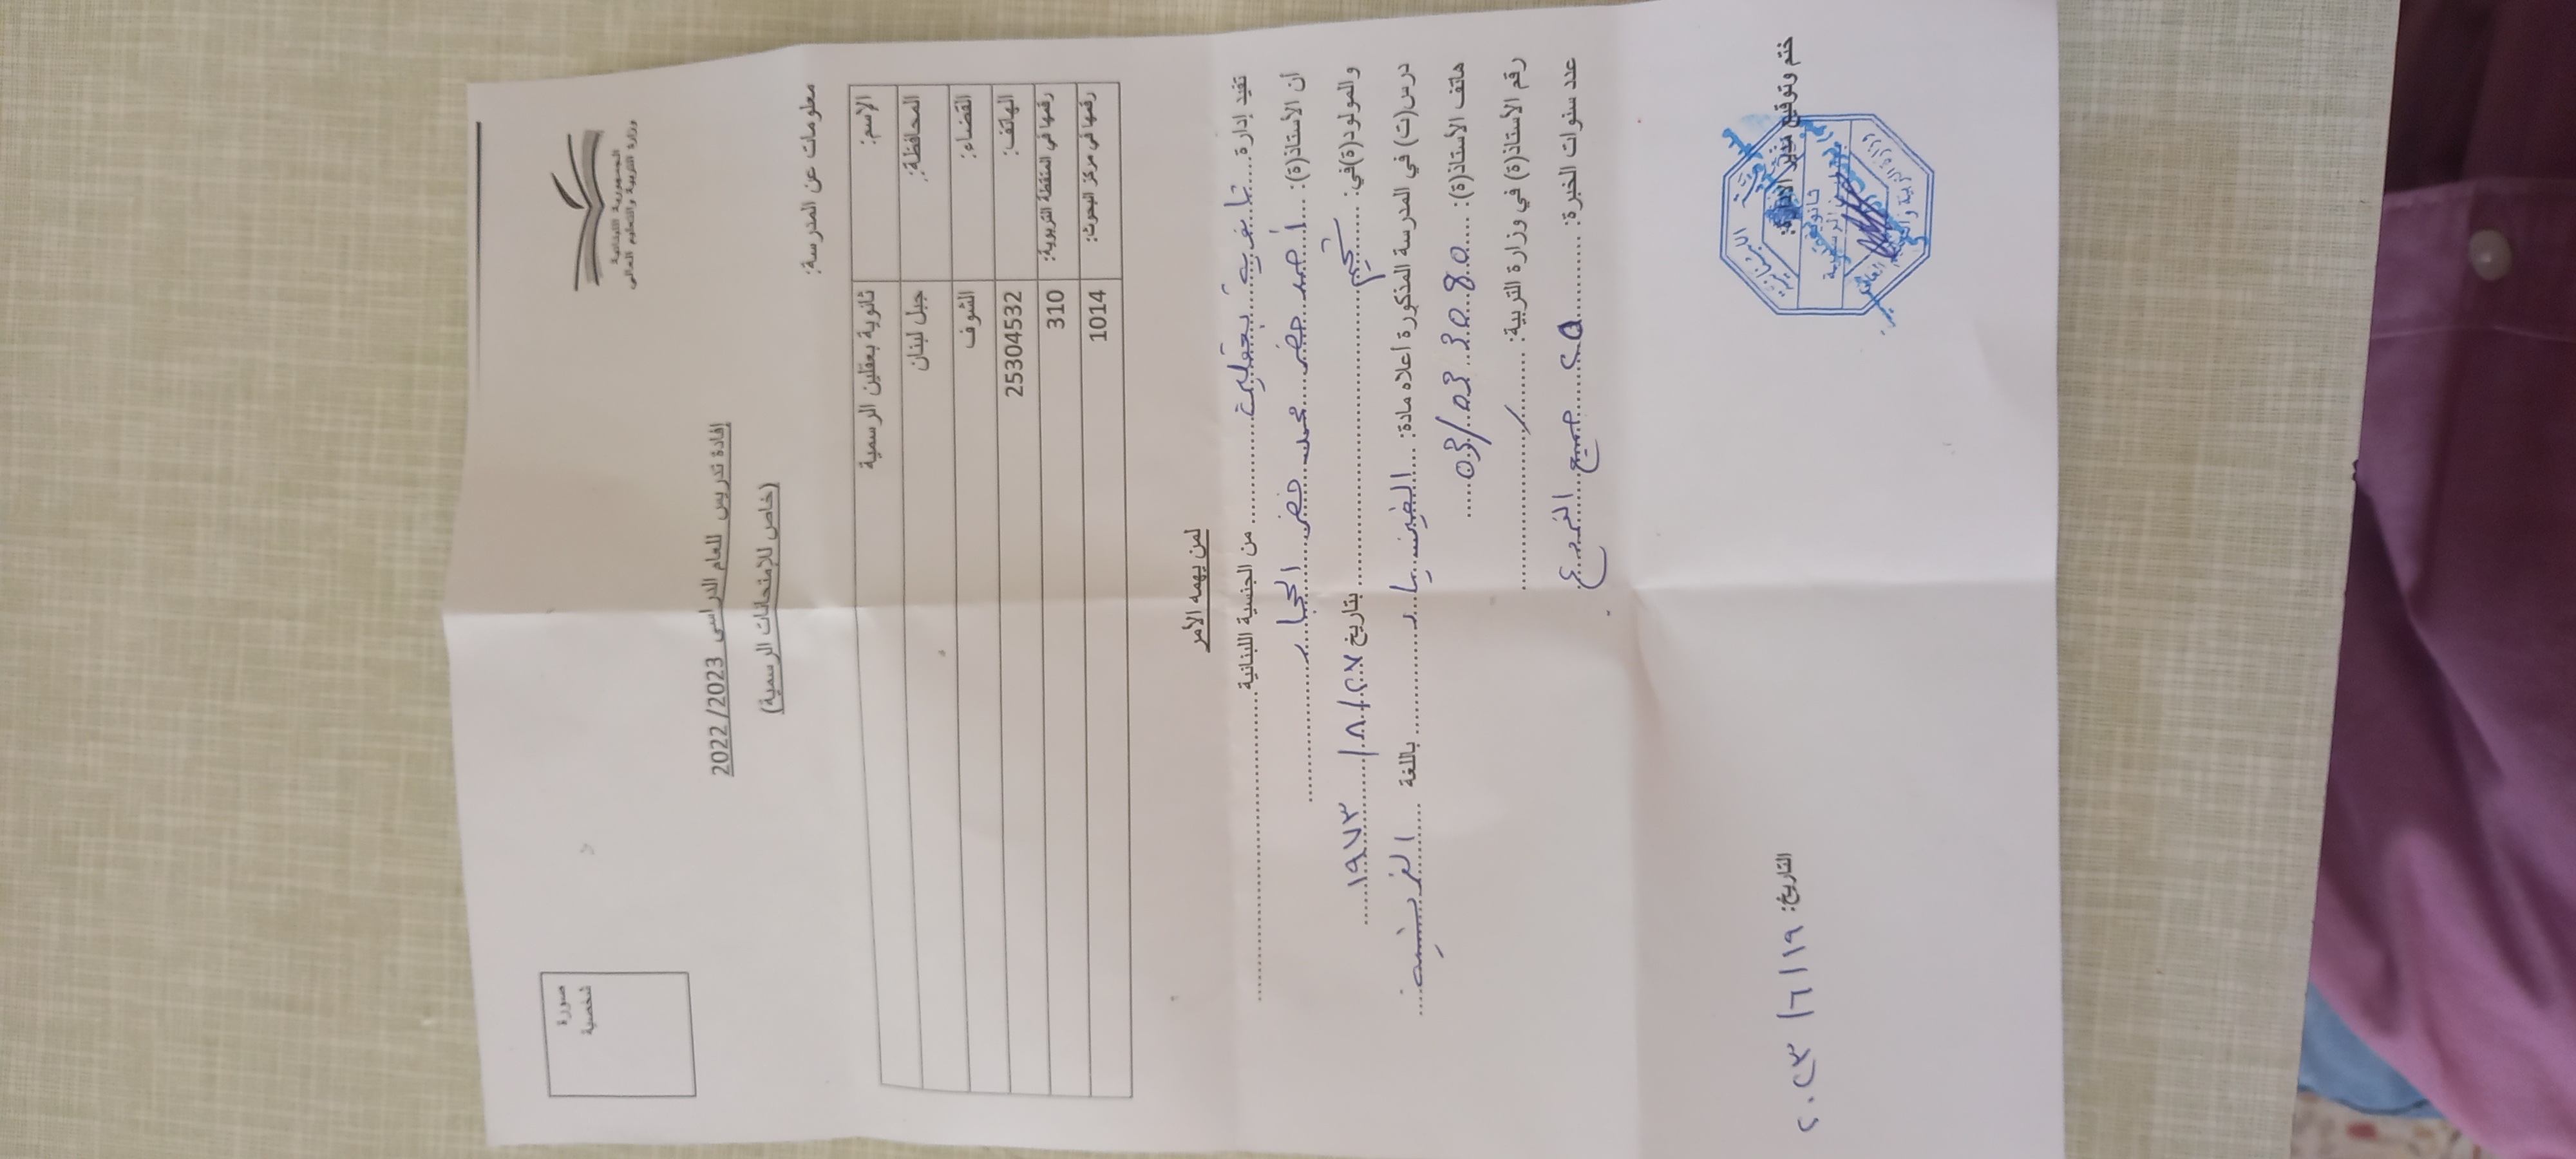 الجمهورية اللبنانية
وزارة التربية والتعليم العالي
صورة
شخصية
إفادة تدريس للعام الدراسي 2022/2023
(خاص للإمتحانات الرسمية)
معلومات عن المدرسة:
الإسم: ثانوية بعقلين الرسمية
المحافظة: جبل لبنان
القضاء: الشوف
الهاتف: 25304532
رقمها في المنطقة التربوية: 310
رقمها في مركز البحوث: 1014
لمن يهمه الأمر
تفيد إدارة ثانوية بعقلين من الجنسية اللبنانية
ان الأستاذ(ة): خضر الحجار
والمولود(ة) في: شحيم بتاريخ ٢٧/٨/ ١٩٧٣
درس(ت) في المدرسة المذكورة أعلاه مادة: الفيزياء باللغة الفرنسية
هاتف الأستاذ(ة):
رقم الأستاذ(ة) في وزارة التربية: /
عدد سنوات الخبرة: ٢٥ جميع الفروع
ختم وتوقيع مدير الادارة:
التاريخ: ١٩/ ٦/ ٢٠٢٣